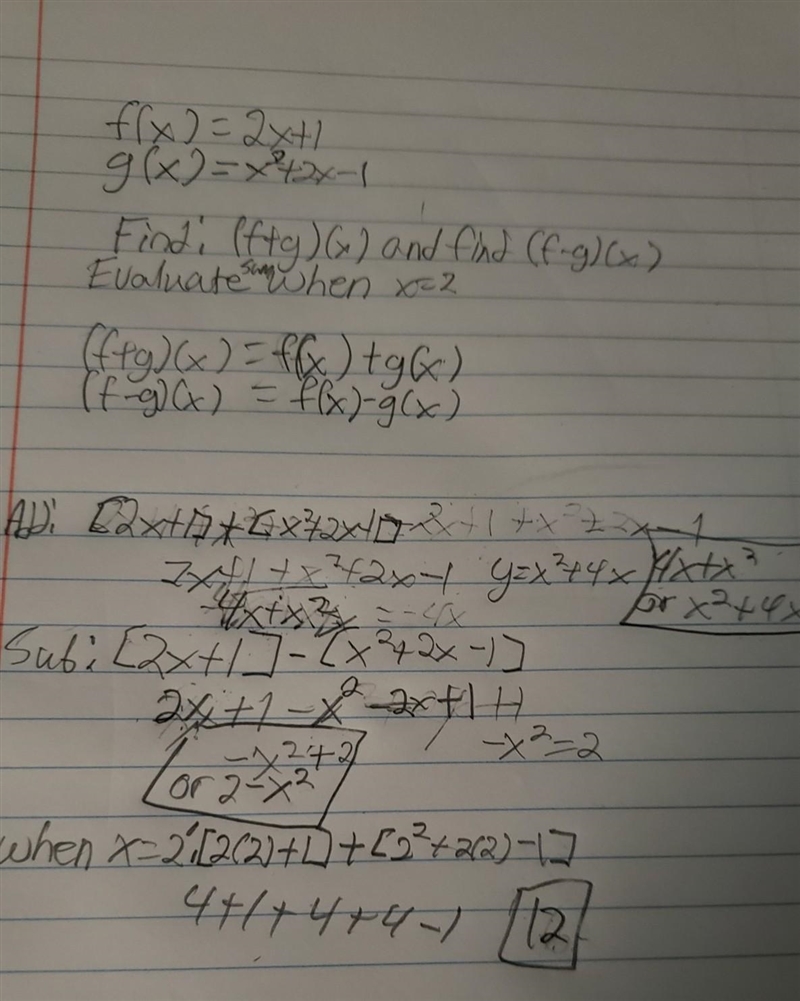 f(x)=2x+1
g(x)=x²+2x-1
Find: (f+g)(x) and find (f-g)(x)
Evaluate sum when x=2
(f+g)(x)=f(x)+g(x)
(f-g)(x) = f(x)-g(x)
Add: [2x+1]+[x²+2x-1] 2x+1+x²+2x-1
2x+1+x²+2x-1 y=x²+4x 4x+x²
or x²+4x
4x+x² = -4x
Sub: [2x+1]-[x²+2x-1]
2x+1-x²-2x+1
-x²=2
-x²+2
or 2-x²
When x=2: [2(2)+1]+[2²+2(2)-1]
4+1+4+4-1 12